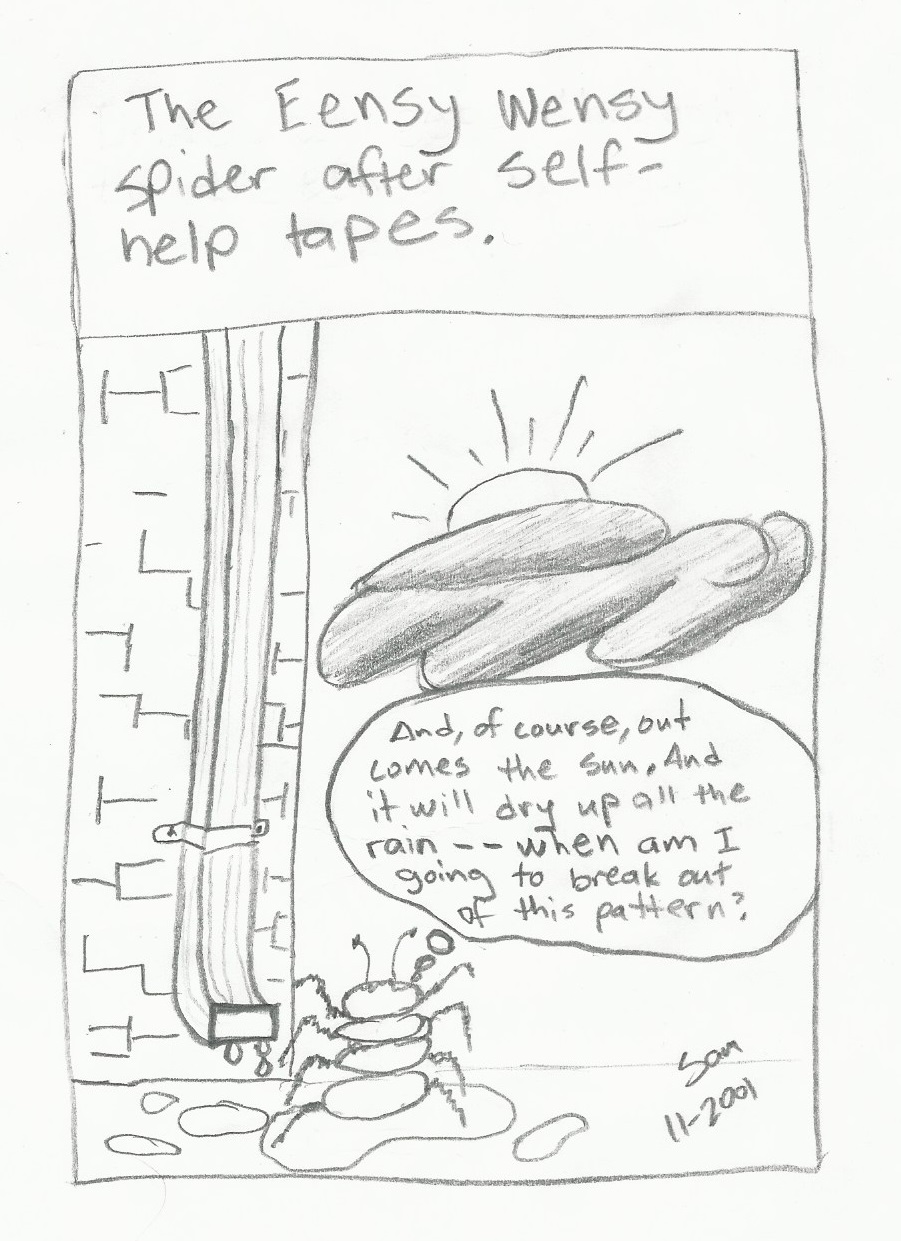 The Eensy Wensy
spider after self-
help tapes.
And, of course, out
comes the sun. And
it will dry up all the
rain -- when am I
going to break out
of this pattern?
Sam
11-2001